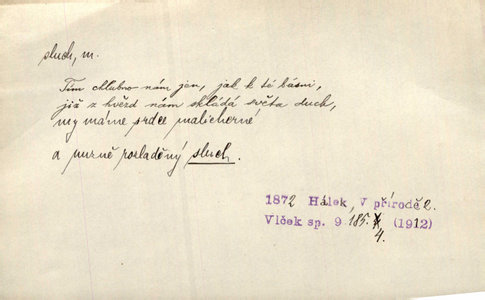 sluch, m.
Tím chlubno nám jen, jak k té básni,
již z hvězd nám skládá světa duch,
my máme srdce malicherné
a nurně rozladěný sluch.
1872 Hálek, V přírodě 2.
Vlček sp. 9 185. (1912)
4.